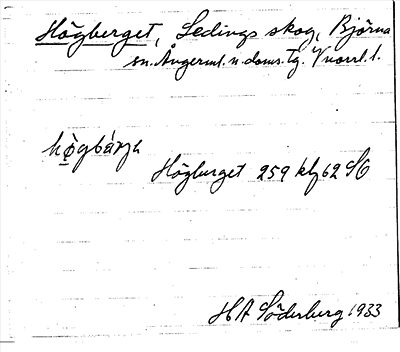 Högberget, Ledings skog, Björna
sn. Ångerml. n. doms. tg. Vnorrl. l.
högbärje
Högberget 259 kf 62 SO
HA Söderberg 1933